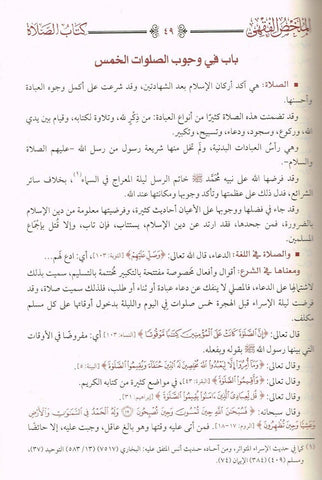 الملخص الفقهي ٤٩ كتاب الصلاة
باب في وجوب الصلوات الخمس
▪ الصلاة: هي آكد أركان الإسلام بعد الشهادتين، وقد شرعت على أكمل وجوه العبادة
وأحسنها.
وقد تضمنت هذه الصلاة كثيرًا من أنواع العبادة: من ذِكْرٍ لله، وتلاوة لكتابه، وقيام بين يدي
الله، وركوع، وسجود، ودعاء، وتسبيح، وتكبير.
وهي رأسُ العبادات البدنية، ولم تخل منها شريعة رسول من رسل الله -عليهم الصلاة
والسلام-.
وقد فرضها الله على نبيه محمَّد ﷺ خاتم الرسل ليلة المعراج في السماء(١)، بخلاف سائر
الشرائع، فدل ذلك على عظمتها وتأكد وجوبها ومكانتها عند الله.
وقد جاء في فضلها ووجوبها على الأعيان أحاديث كثيرة، وفرضيتها معلومة من دين الإسلام
بالضرورة، فمن جحدها، فقد ارتد عن دين الإسلام، يستتاب، فإن تاب، وإلا قُتل بإجماع
المسلمين.
▪ والصلاة في اللغة: الدعاء، قال الله تعالى: ﴿وَصَلِّ عَلَيْهِمْ﴾ [التوبة: ١٠٣]، أي: ادع لهم...
ومعناها في الشرع: أقوال وأفعال مخصوصة مفتتحة بالتكبير مختتمة بالتسليم، سميت بذلك
لاشتمالها على الدعاء، فالمصلي لا ينفك عن دعاء عبادة أو ثناء أو طلب، فلذلك سميت صلاة، وقد
فرضت ليلة الإسراء قبل الهجرة خمس صلوات في اليوم والليلة بدخول أوقاتها على كل مسلم
مكلف.
قال تعالى: ﴿إِنَّ الصَّلَاةَ كَانَتْ عَلَى الْمُؤْمِنِينَ كِتَابًا مَوْقُوتًا﴾ [النساء: ١٠٣]، أي: مفروضًا في الأوقات
التي بينها رسول الله ﷺ بقوله وبفعله.
وقال تعالى: ﴿وَمَا أُمِرُوا إِلَّا لِيَعْبُدُوا اللَّهَ مُخْلِصِينَ لَهُ الدِّينَ حُنَفَاءَ وَيُقِيمُوا الصَّلَاةَ﴾ [البينة: ٥].
وقال تعالى: ﴿وَأَقِيمُوا الصَّلَاةَ﴾ [البقرة: ٤٣]، في مواضع كثيرة من كتابه الكريم.
وقال تعالى: ﴿قُل لِّعِبَادِيَ الَّذِينَ آمَنُوا يُقِيمُوا الصَّلَاةَ﴾ [إبراهيم: ٣١].
وقال سبحانه: ﴿فَسُبْحَانَ اللَّهِ حِينَ تُمْسُونَ وَحِينَ تُصْبِحُونَ ۝ وَلَهُ الْحَمْدُ فِي السَّمَاوَاتِ وَالْأَرْضِ
وَعَشِيًّا وَحِينَ تُظْهِرُونَ﴾ [الروم: ١٧-١٨]. فمن أتى عليه وقتها وهو بالغ عاقل، وجبت عليه، إلا حائضًا
(١) كما في حديث الإسراء المتواتر، ومن أحاده: حديث أنس المتفق عليه: البخاري (٧٥١٧) (١٣/ ٥٨٣) التوحيد (٣٧)،
ومسلم (٤٠٩) (٣٨٤) الإيمان (٧٤).